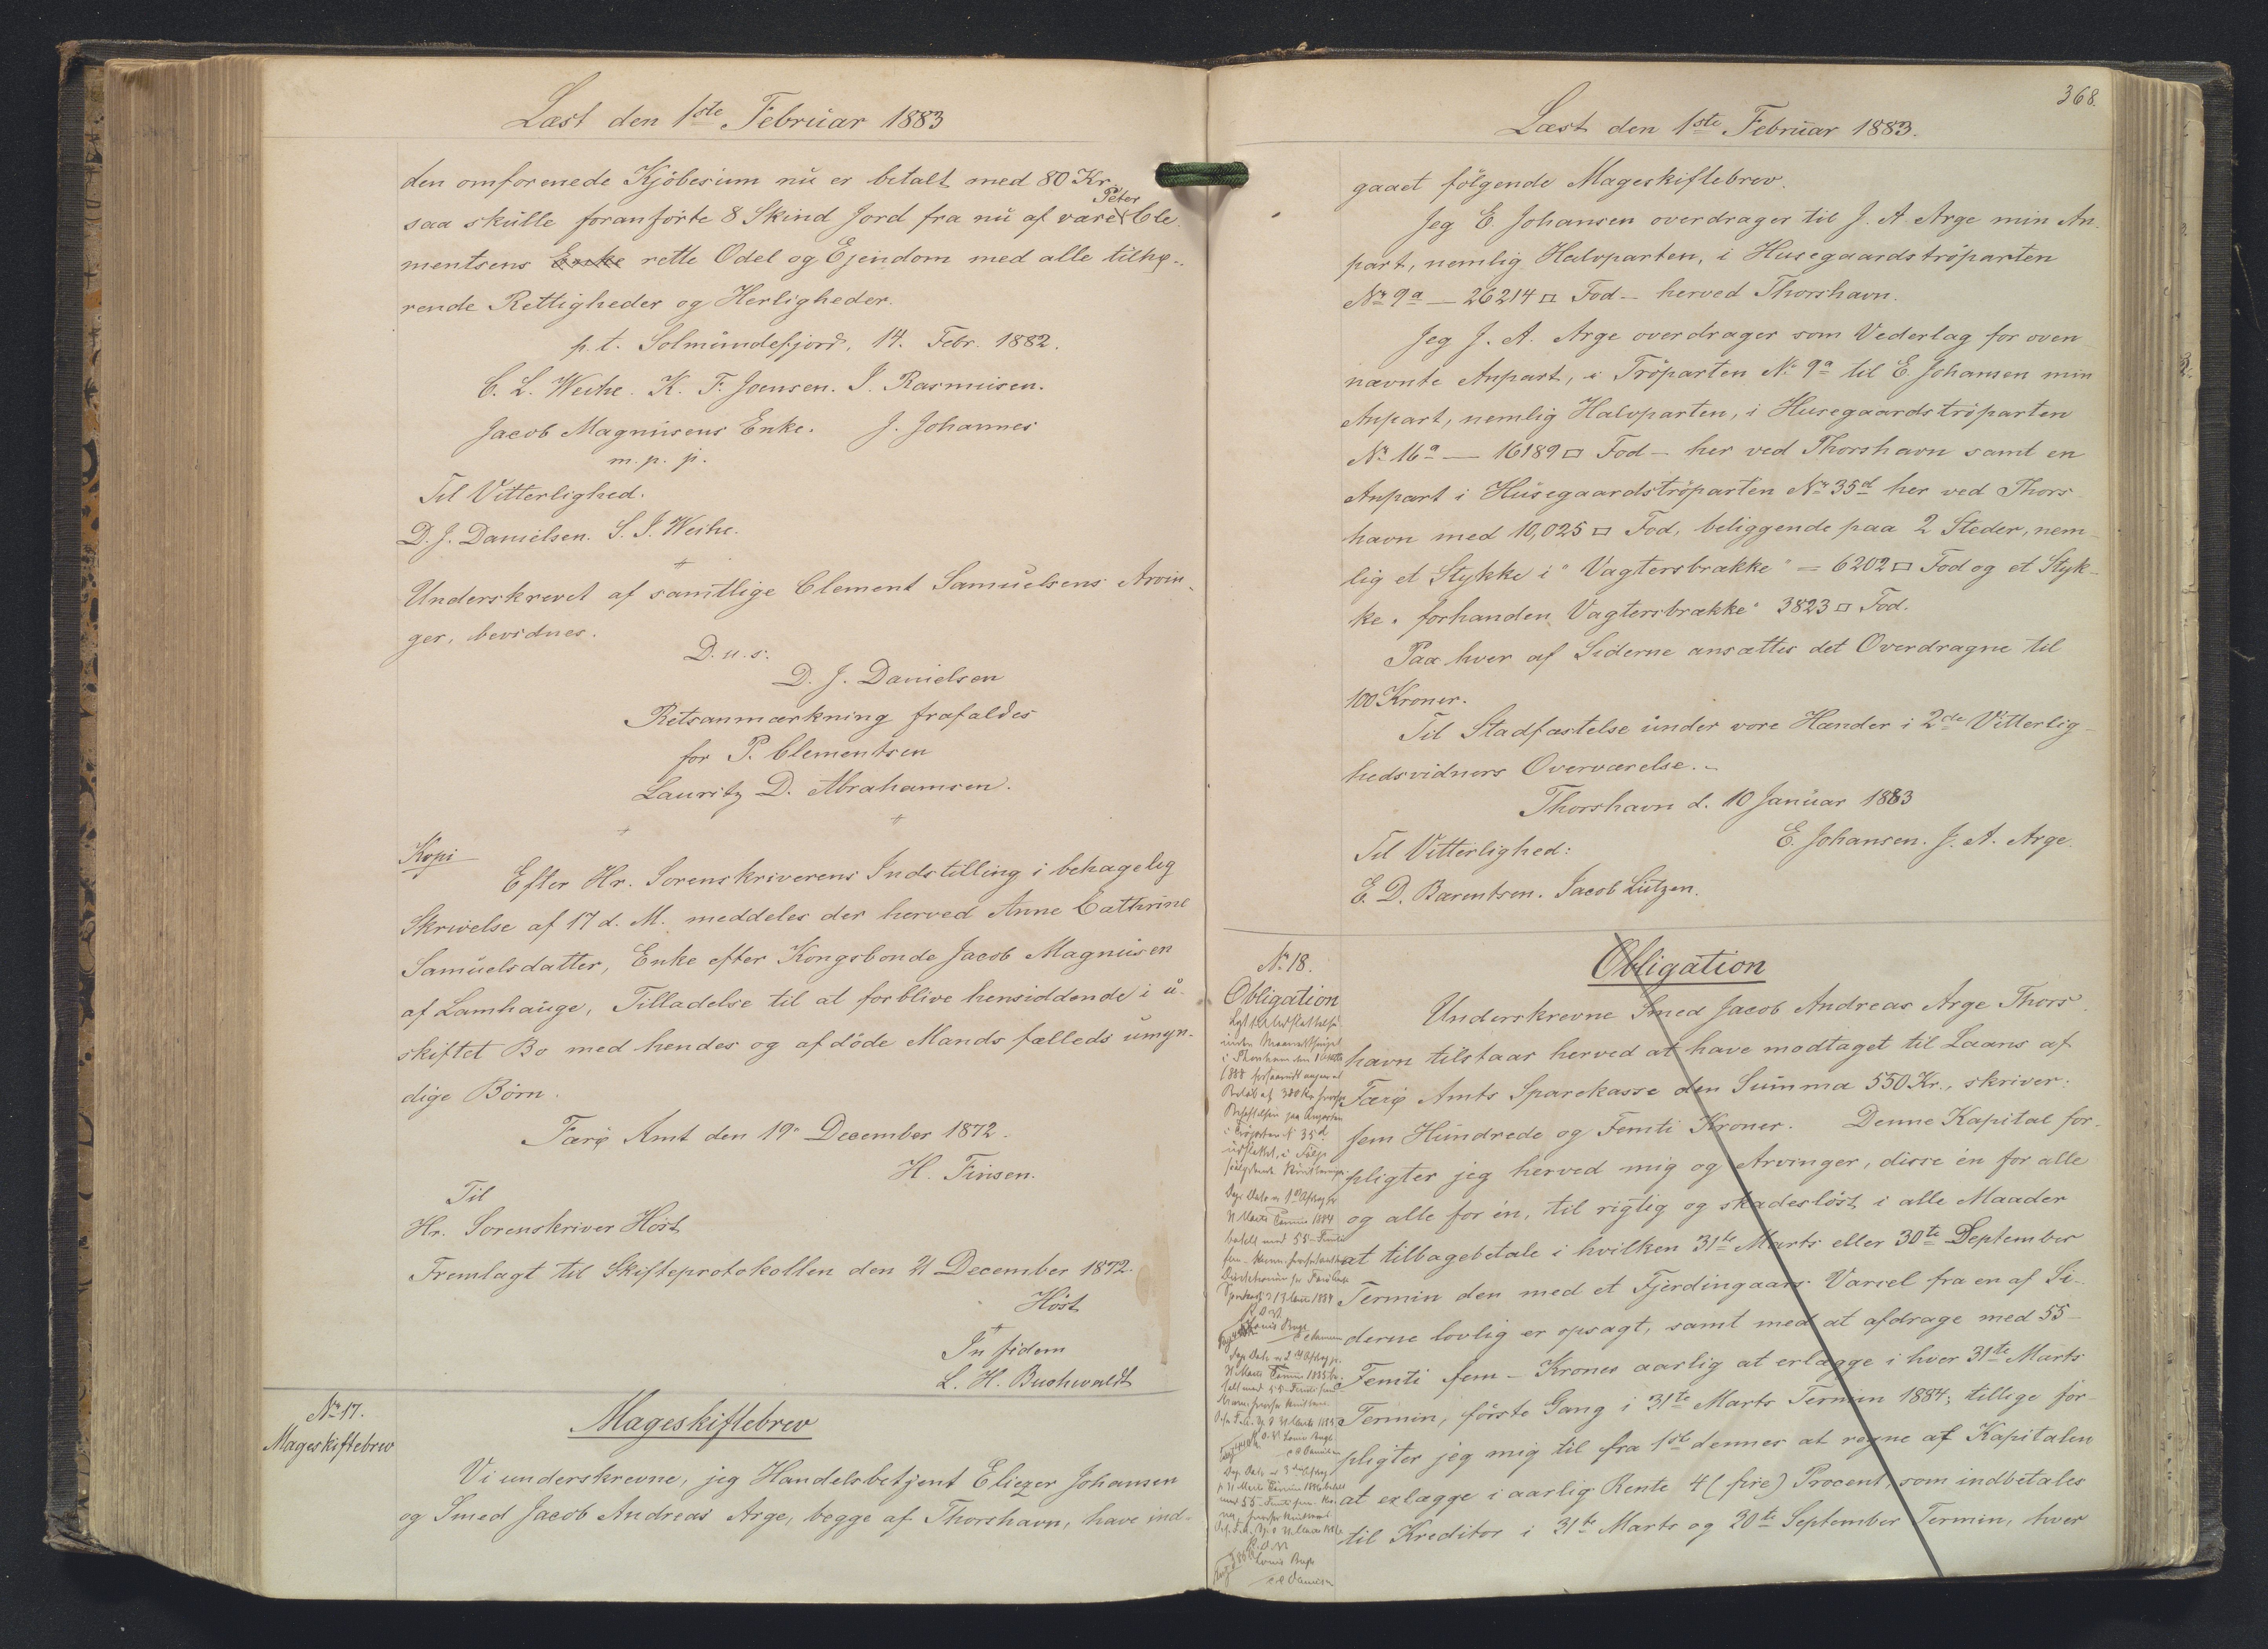 Læst den 1ste Februar 1883
den omforenede Kjöbesum nu er betalt med 80 Kr.
Peter
saa skulle foranförte 8 Skind Jord fra nu af være Cle
mentsens Enke rette Odel og Ejendom med alle tilhø-
rende Rettigheder og Herligheder.
p. t. Solmundefjord, 14. Febr. 1882.
C. L. Weihe. K. F. Joensen. J. Rasmusen.
Jacob Magnusens Enke. J. Johannes
m. p. p.
Til Vitterlighed.
D. J. Danielsen. S. J. Weihe.
Underskrevet af samtlige Clement Samuelsens Arvin-
ger, bevidnes.
D. u. s.
D. J. Danielsen
Retsanmærkning frafaldes
for P. Clementsen
Lauritz D. Abrahamsen.
Kopi
Efter Hr. Sorenskriverens Indstilling i behagelig
Skrivelse af 17 d. M. meddeles der herved Anne Cathrine
Samuelsdatter, Enke efter Kongsbonde Jacob Magnusen
af Lamhauge, Tilladelse til at forblive hensiddende i u-
skiftet Bo med hendes og afdöde Mands fælleds umyn-
dige Börn.
Færø Amt den 19 December 1872.
H. Finsen.
Til
Hr. Sorenskriver Höst
Fremlagt til Skifteprotokollen den 21 December 1872.
Höst
In fidem
L. H. Buchwaldt
No 17.
Mageskiftebrev
Mageskiftebrev
Vi underskrevne, jeg Handelsbetjent Eliezer Johansen
og Smed Jacob Andreas Arge, begge af Thorshavn, have ind-
368.
Læst den 1ste Februar 1883.
gaaet fölgende Mageskiftebrev.
Jeg E. Johansen overdrager til J. A. Arge min An-
part, nemlig Halvparten, i Husegaardströparten
No 9a — 26214 □ Fod — herved Thorshavn.
Jeg J. A. Arge overdrager som Vederlag for oven
nævnte Anpart, i Tröparten No 9a til E. Johansen min
Anpart, nemlig Halvparten, i Husegaardströparten
No 16a — 16189 □ Fod — her ved Thorshavn samt en
Anpart i Husegaardströparten No 35d her ved Thors-
havn med 10,025 □ Fod, beliggende paa 2 Steder, nem-
lig et Stykke i "Vagtersbrække" = 6202 □ Fod og et Styk-
ke "forhanden Vagtersbrække" 3823 □ Fod.
Paa hver af Siderne ansættes det Overdragne til
100 Kroner.
Til Stadfæstelse under vore Hænder i 2de Vitterlig-
hedsvidners Overværelse.
Thorshavn d. 10 Januar 1883
Til Vitterlighed: E. Johansen. J. A. Arge.
E. D. Barentsen. Jacob Lützen.
No 18.
Obligation
Obligation
Underskrevne Smed Jacob Andreas Arge Thors-
havn tilstaar herved at have modtaget til Laans af
Færø Amts Sparekasse den Summa 550 Kr., skriver:
fem Hundrede og Femti Kroner. Denne Kapital for-
pligter jeg herved mig og Arvinger, disse én for alle
og alle for én, til rigtig og skadeslöst i alle Maader
at tilbagebetale i hvilken 31te Marts eller 30te September
Termin den med et Fjerdingaars Varsel fra en af Si-
derne lovlig er opsagt, samt med at afdrage med 55 —
Femti fem — Kroner aarlig at erlægge i hver 31te Marts
Termin, förste Gang i 31te Marts Termin 1884; tillige for-
pligter jeg mig til fra 1ste dennes at regne af Kapitalen
at erlægge i aarlig Rente 4 (fire) Procent, som indbetales
til Kreditor i 31te Marts og 30te September Termin, hver